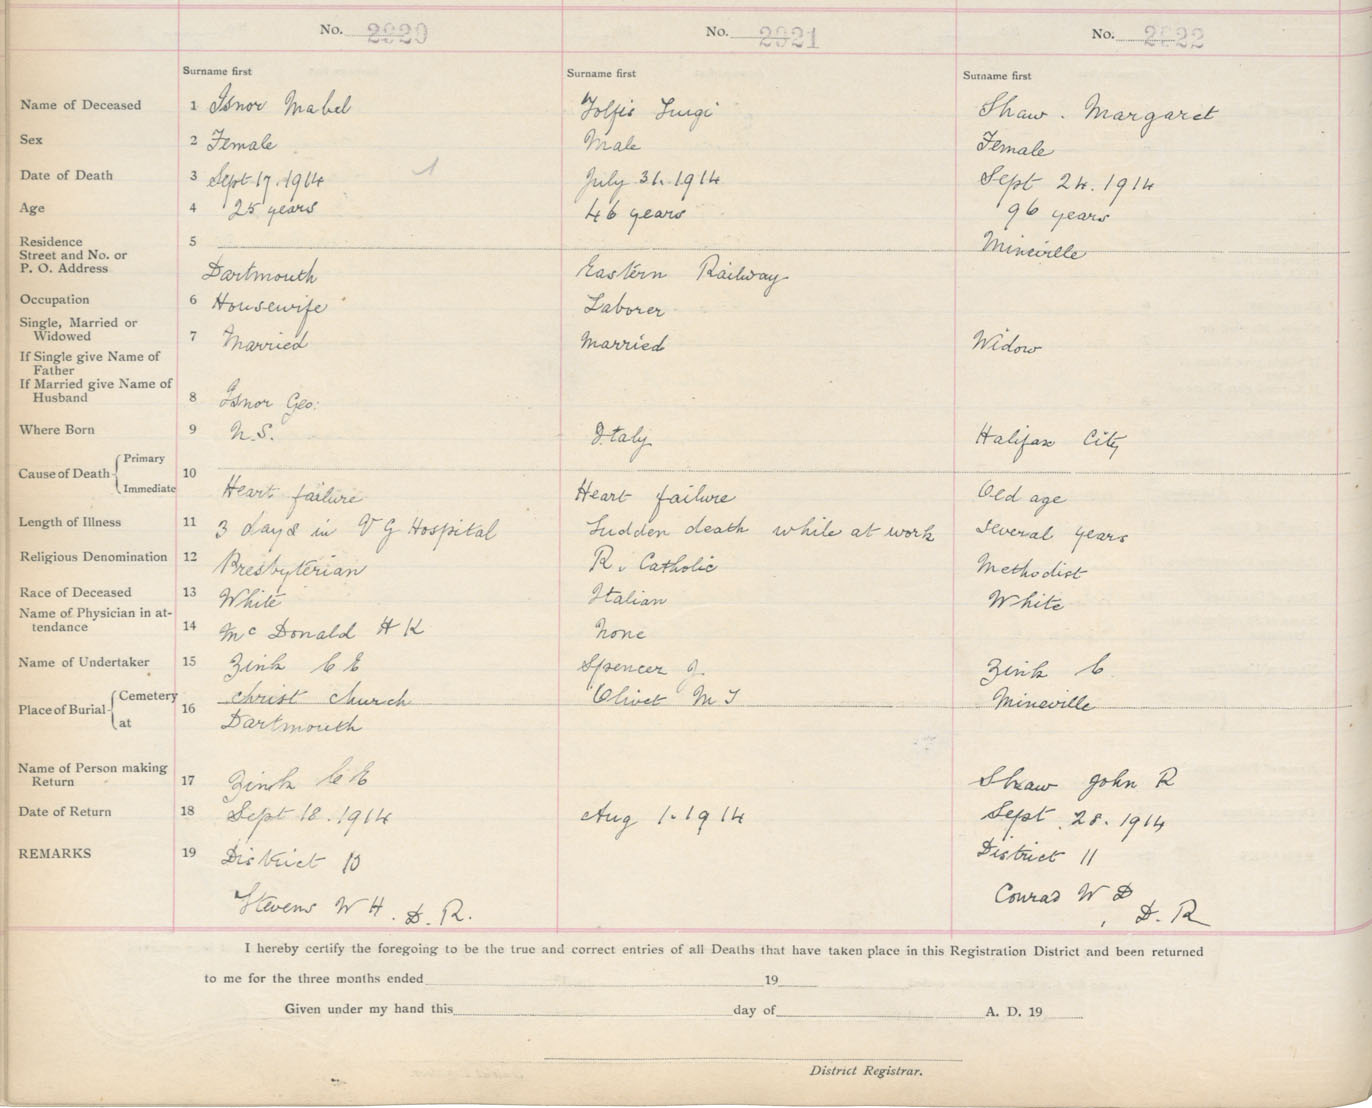 No. 2920 No. 2921 No. 2922
Surname first Surname first Surname first
Name of Deceased 1 Isnor Mabel Tolfis Luigi Shaw. Margaret
Sex 2 Female Male Female
Date of Death 3 Sept 17. 1914 July 31. 1914 Sept 24. 1914
Age 4 25 years 46 years 96 years
Residence 5 Mineville
Street and No. or
P. O. Address Dartmouth Eastern Railway
Occupation 6 Housewife Laborer
Single, Married or
Widowed 7 Married Married Widow
If Single give Name of
Father
If Married give Name of
Husband 8 Isnor Geo:
Where Born 9 N.S. Italy Halifax City
Primary
Cause of Death 10
Immediate Heart failure Heart failure Old age
Length of Illness 11 3 days in V G Hospital Sudden death while at work several years
Religious Denomination 12 Presbyterian R. Catholic Methodist
Race of Deceased 13 White Italian White
Name of Physician in at-
tendance 14 Mc Donald H K None
Name of Undertaker 15 Zink C E Spencer J. Zink C.
Cemetery Christ Church Olivet M T Mineville
Place of Burial 16
at Dartmouth
Name of Person making
Return 17 Zink C E Shaw John R
Date of Return 18 Sept 18. 1914 Aug 1. 1914 Sept. 28. 1914
REMARKS 19 District 10 District 11
Stevens W H. D. R. Conrad W D
D. R
I hereby certify the foregoing to be the true and correct entries of all Deaths that have taken place in this Registration District and been returned
to me for the three months ended 19
Given under my hand this day of A. D. 19
District Registrar.